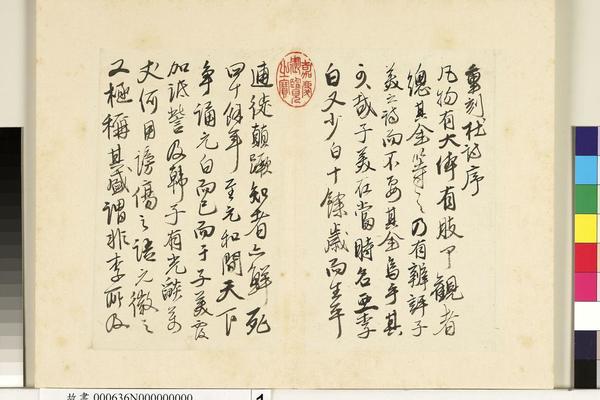 重刻杜詩序
凡物有大體有肢甲觀者
總其全等之乃有辨評子
美之詩而不要其全烏乎其
可哉子美在當時名亞李
白又少白十餘歲而生平
逋徒顛蹶知者亦鮮死
四十餘年至元和間天下
爭誦元白而已而于子美覆
加詆訾及韓子有光燄萬
丈何用謗傷之語元微之
又極稱其盛謂非李所及
嘉慶御覽之寶
000636N000000000